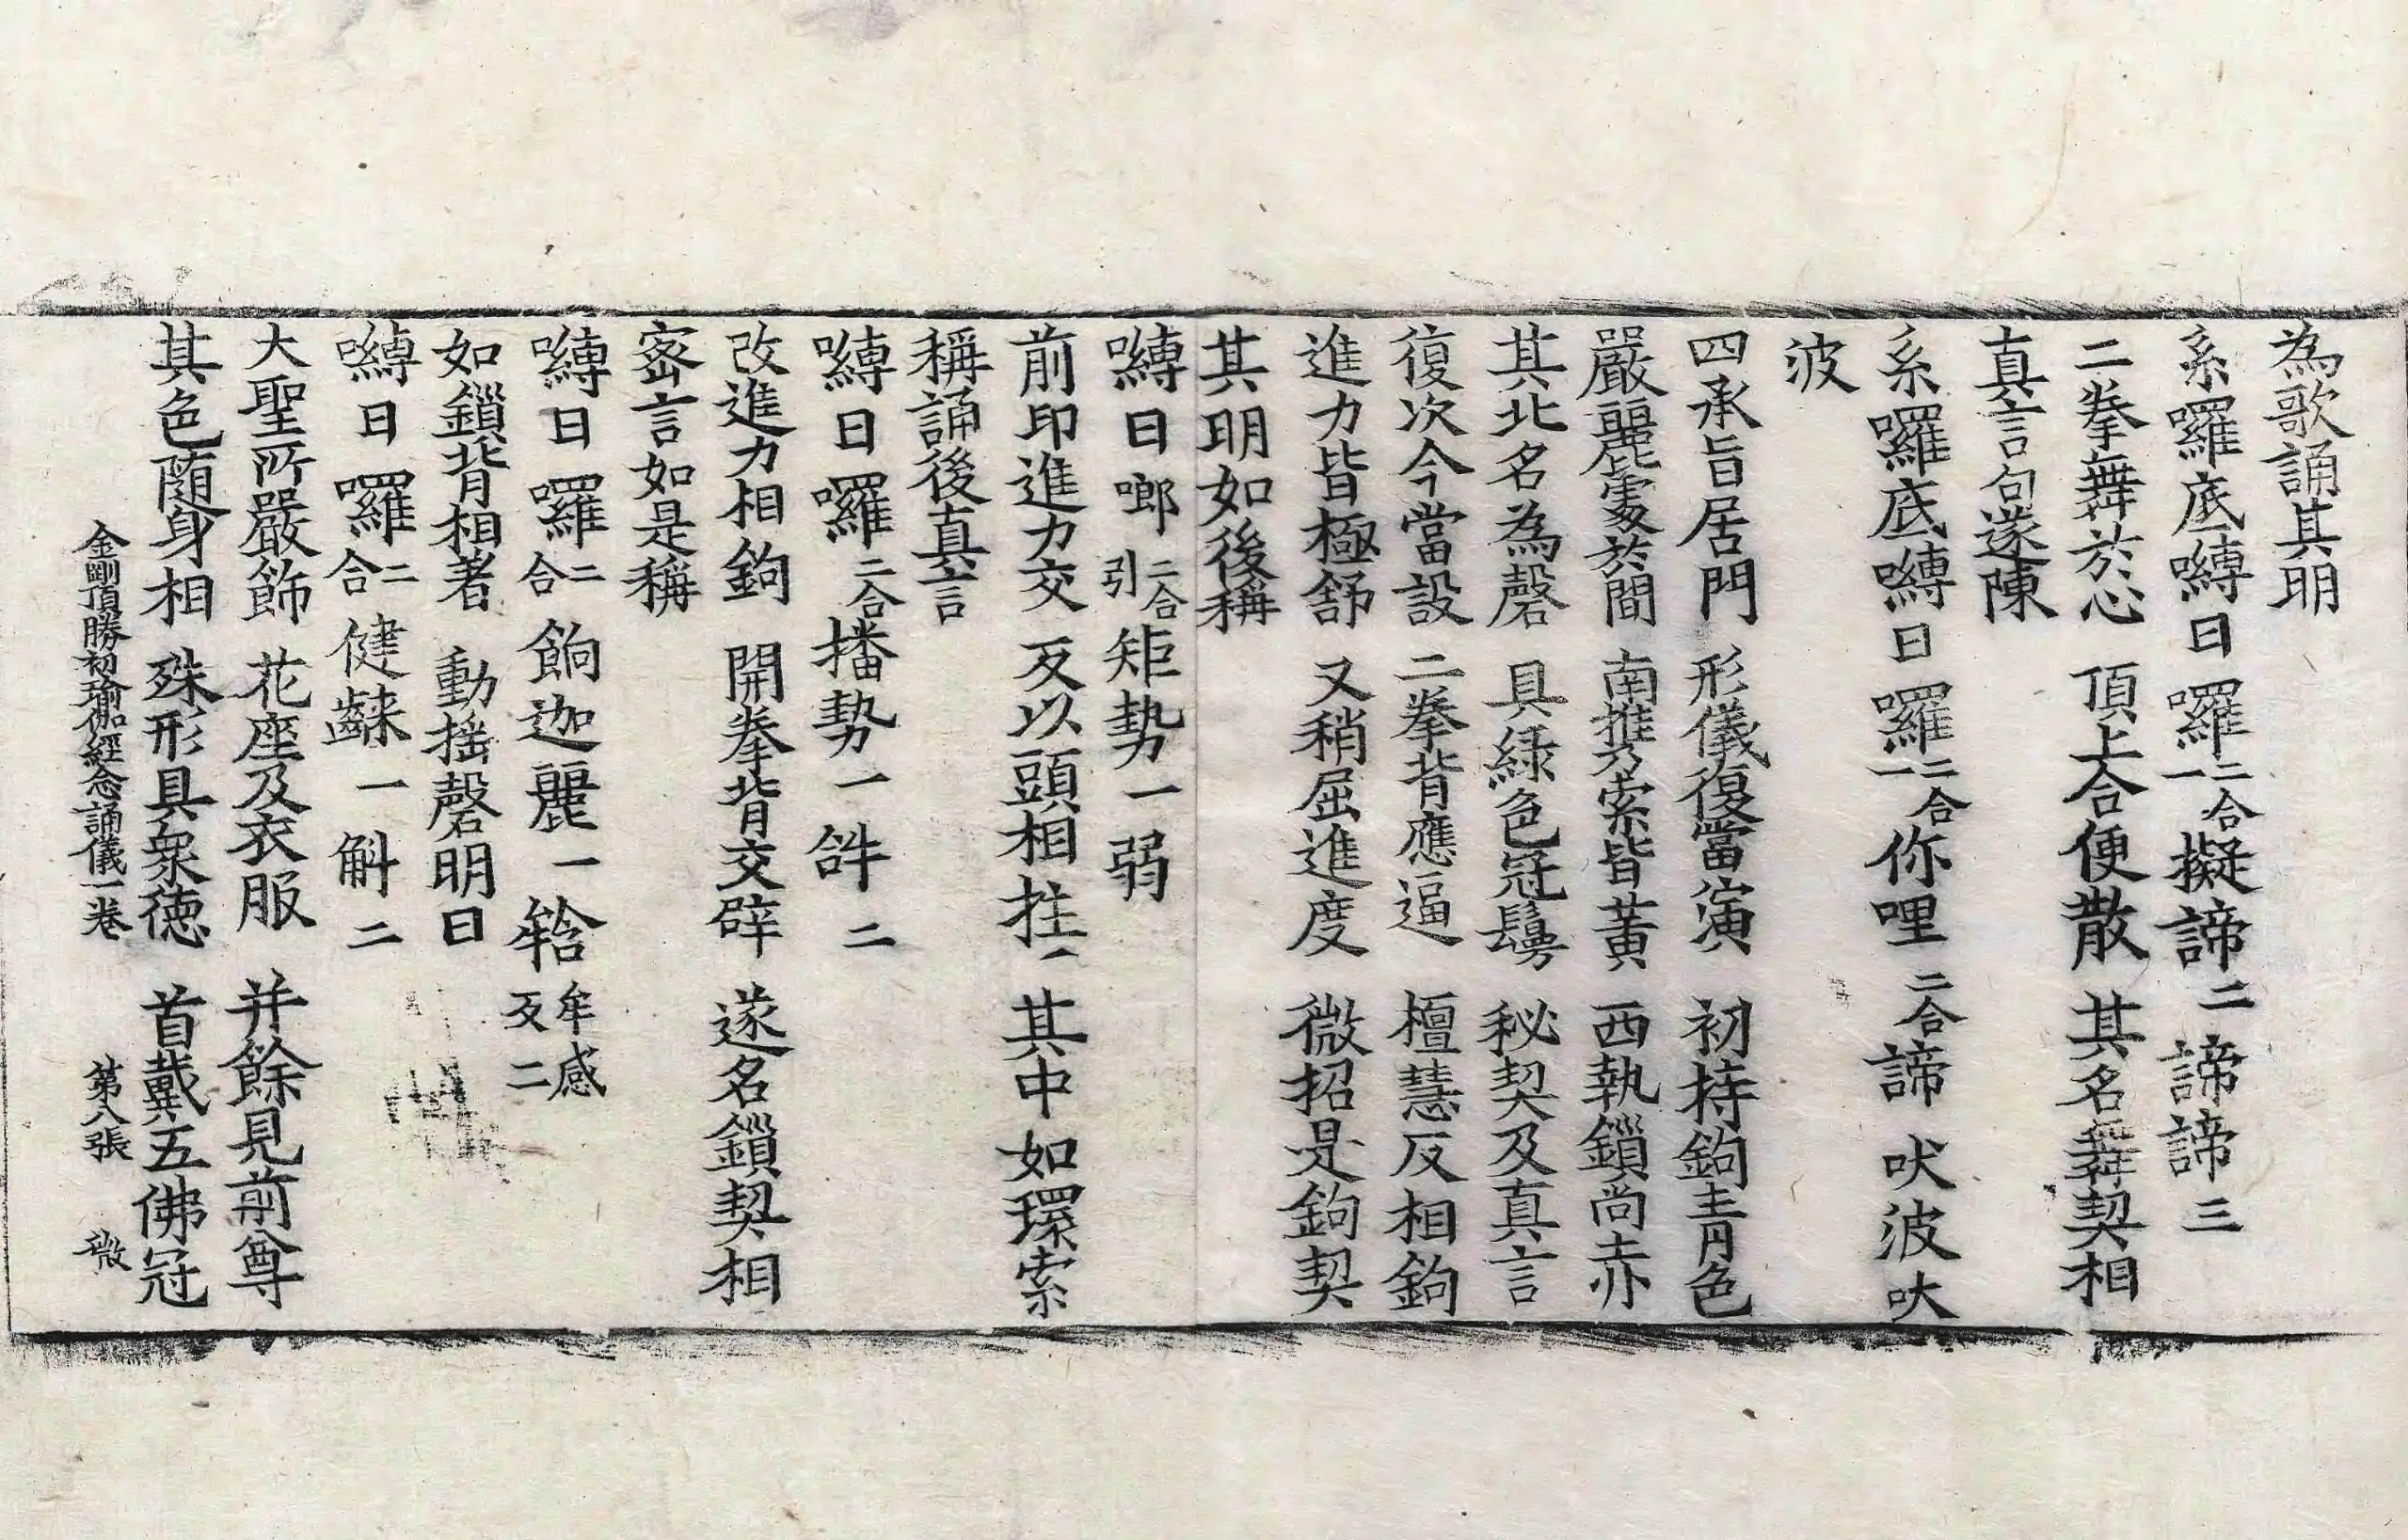 為歌誦其明
系囉底嚩日囉二合一擬諦二諦諦三
二拳舞於心 頂上合便散 其名舞契相
真言句遂陳
系囉底嚩日囉二合一你哩二合諦 吠波吠
波
四承旨居門 形儀復當演 初持鉤青色
嚴麗處於間 南携索皆黃 西執鎖尚赤
其北名為磬 具緑色冠鬘 秘契及真言
復次今當設 二拳背應逼 檀慧反相鉤
進力皆極舒 又稍屈進度 微招是鉤契
其明如後稱
嚩日啷二合引矩勢一弱
前印進力交 反以頭相拄 其中如環索
稱誦後真言
嚩日囉二合播勢一𤙖二
改進力相鉤 開拳背交辟 遂名鎖契相
密言如是稱
嚩日囉二合餉迦麗一𤚥牟感反二
如鎖背相著 動搖磬明曰
嚩日囉二合健䶒一斛二
大聖所嚴飾 花座及衣服 并餘見前尊
其色随身相 殊形具衆徳 首戴五佛冠
金剛頂勝初瑜伽經念誦儀一卷 第八張 微